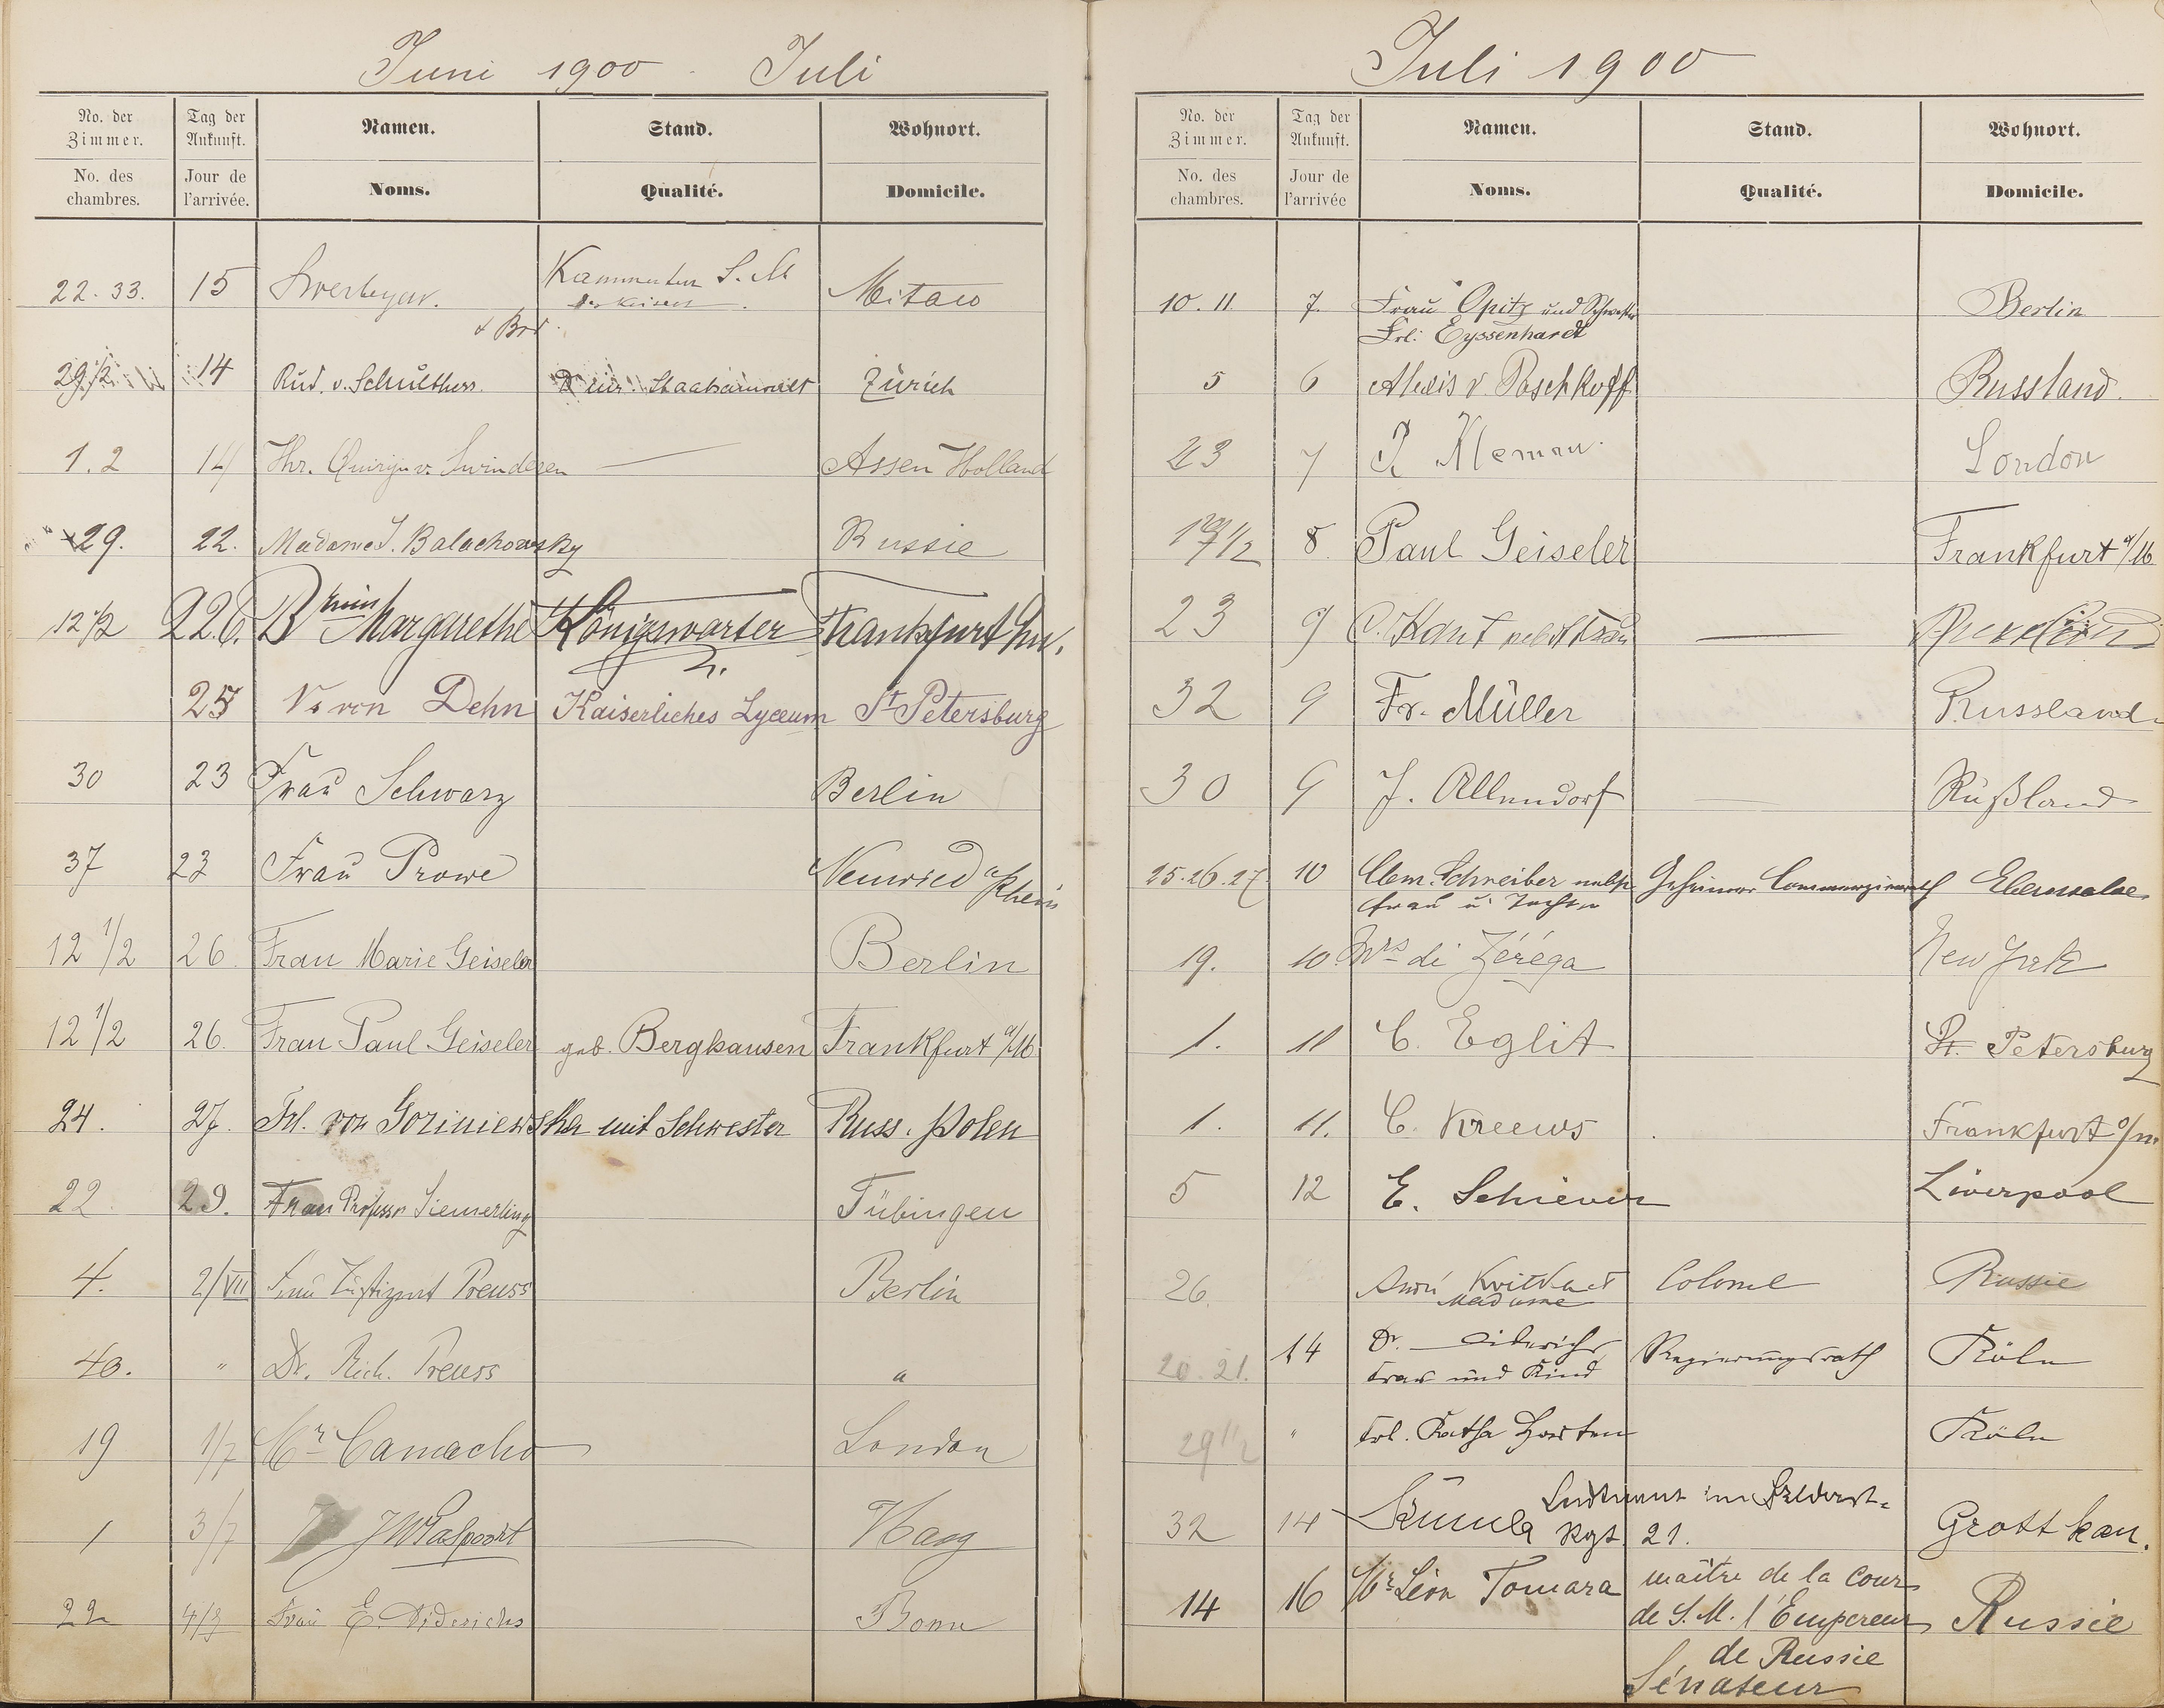 Juni 1900 - Juli
No. der Zimmer. Tag der Ankunft. Namen. Stand. Wohnort.
No. des chambres. Jour de l'arrivée. Noms. Qualité. Domicile.
22. 33. 15 S. M. Mitau
des Kaisers
29 1/2 14 Rud. v. Schulthess. Staatsanwalt Zürich
1. 2 14 Quirijn v. Swinderen — Assen Holland
29. 22. Madame J. Balachowsky Russie
12 1/2 22 6. Bnin Margarethe Königswarter Frankfurt
25 von Dehn Kaiserliches Lyceum St Petersburg
30 23 Frau Schwarz Berlin
37 23 Frau Prowe Neuwied a/Rhein
12 1/2 26 Frau Marie Geiseler Berlin
12 1/2 26. Frau Paul Geiseler geb. Berghausen Frankfurt a/M
24. 27. Frl. von Goriniewska mit Schwester Russ. Polen
22. 29. Frau Professor Siemerling Tübingen
4. 2/VII Frau Justizrat Preuss Berlin
40. " Dr. Rich. Preuss "
19 1/7 Mr Camacho London
1 3/7 — Haag
22 4/7 Frau E. Diderichs Bonn
Juli 1900
No. der Zimmer. Tag der Ankunft. Namen. Stand. Wohnort.
No. des chambres. Jour de l'arrivée Noms. Qualité. Domicile.
10. 11. 7. Frau Opitz und Schwester Berlin
Frl. Eyssenhardt
5 6 Alexis v. Paschkoff Russland.
23 7 London
8. Paul Geiseler Frankfurt a/M
23 9 C. Kant nebst Frau —
32 9 Fr. Müller Russland.
30 9 J. Allendorf — Rußland
25. 26. 27. 10 Clem. Schreiber nebst Geheimer Commerzienrath
Frau u. Tochter
19. 10. Mrs di Zéréga New York
1. 11 C. Eglit St. Petersburg
1. 11. C. Kreews Frankfurt a/m.
5 12 E. Schiever Liverpool
26. Colonel Russie
Madame
20. 21. 14 Dr. Regierungsrath Köln
Frau und Kind
29 1/2 " Frl. Horten Köln
Leutnant im Feldart=
32 14 Rgt. 21. Grottkau.
14 16 Mr Léon Tomara maître de la Cour
de S. M. l'Empereur Russie
de Russie
Sénateur